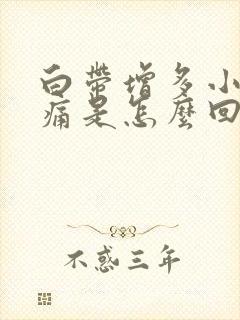 白帶增多小
痛是怎麼回
不惑三年